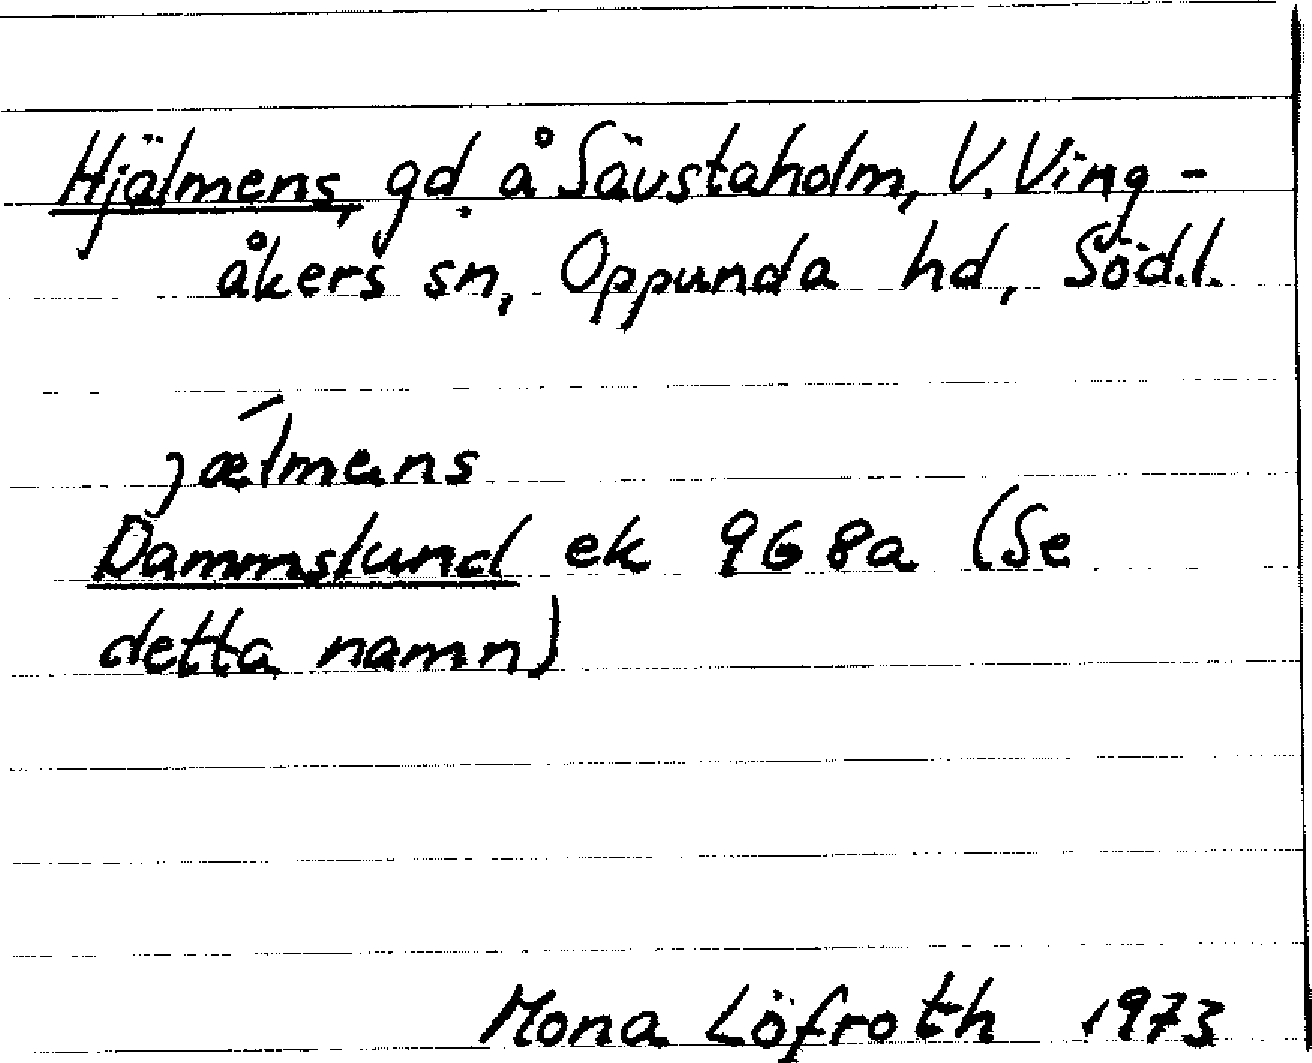 Hjälmens, gd. å Sävstaholm, V. Ving-
åkers sn, Oppunda hd, Söd.l.
jælmens
Dammslund ek 968a (Se
detta namn)
Mona Löfroth 1973